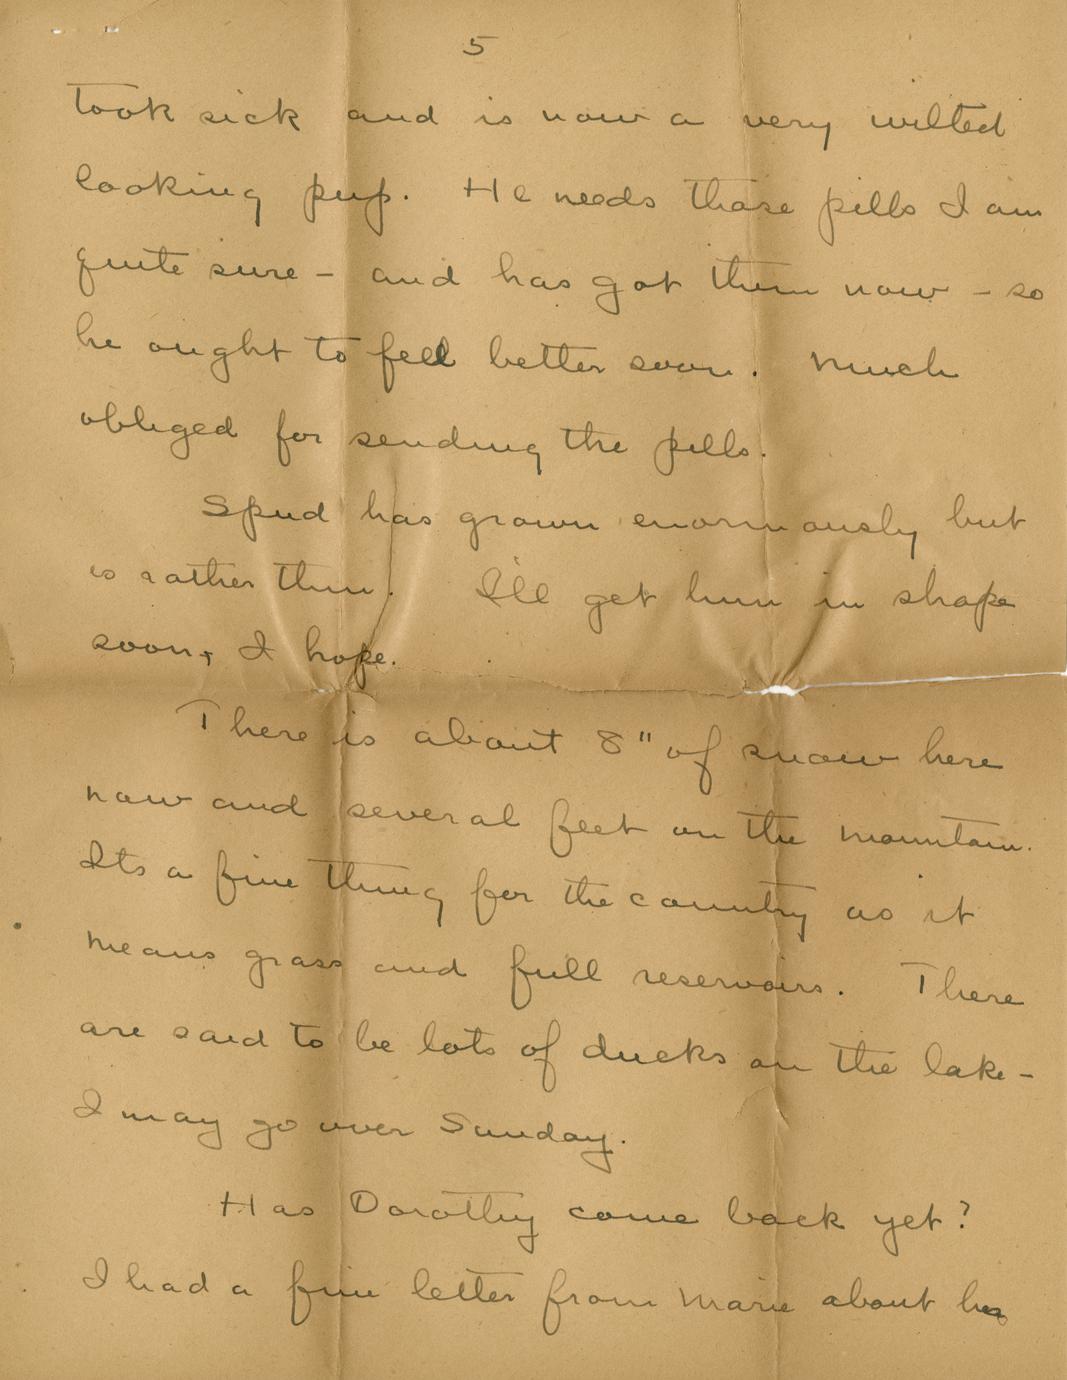 5
took sick and is now a very wilted
looking pup. He needs those pills I am
quite sure – and has got them now – so
he ought to feel better soon. Much
obliged for sending the pills.
Spud has grown enormously but
is rather thin. I'll get him in shape
soon, I hope.
There is about 8" of snow here
now and several feet on the mountain.
Its a fine thing for the country as it
means grass and full reservoirs. There
are said to be lots of ducks on the lake –
I may go over Sunday.
Has Dorothy come back yet?
I had a fine letter from Marie about her